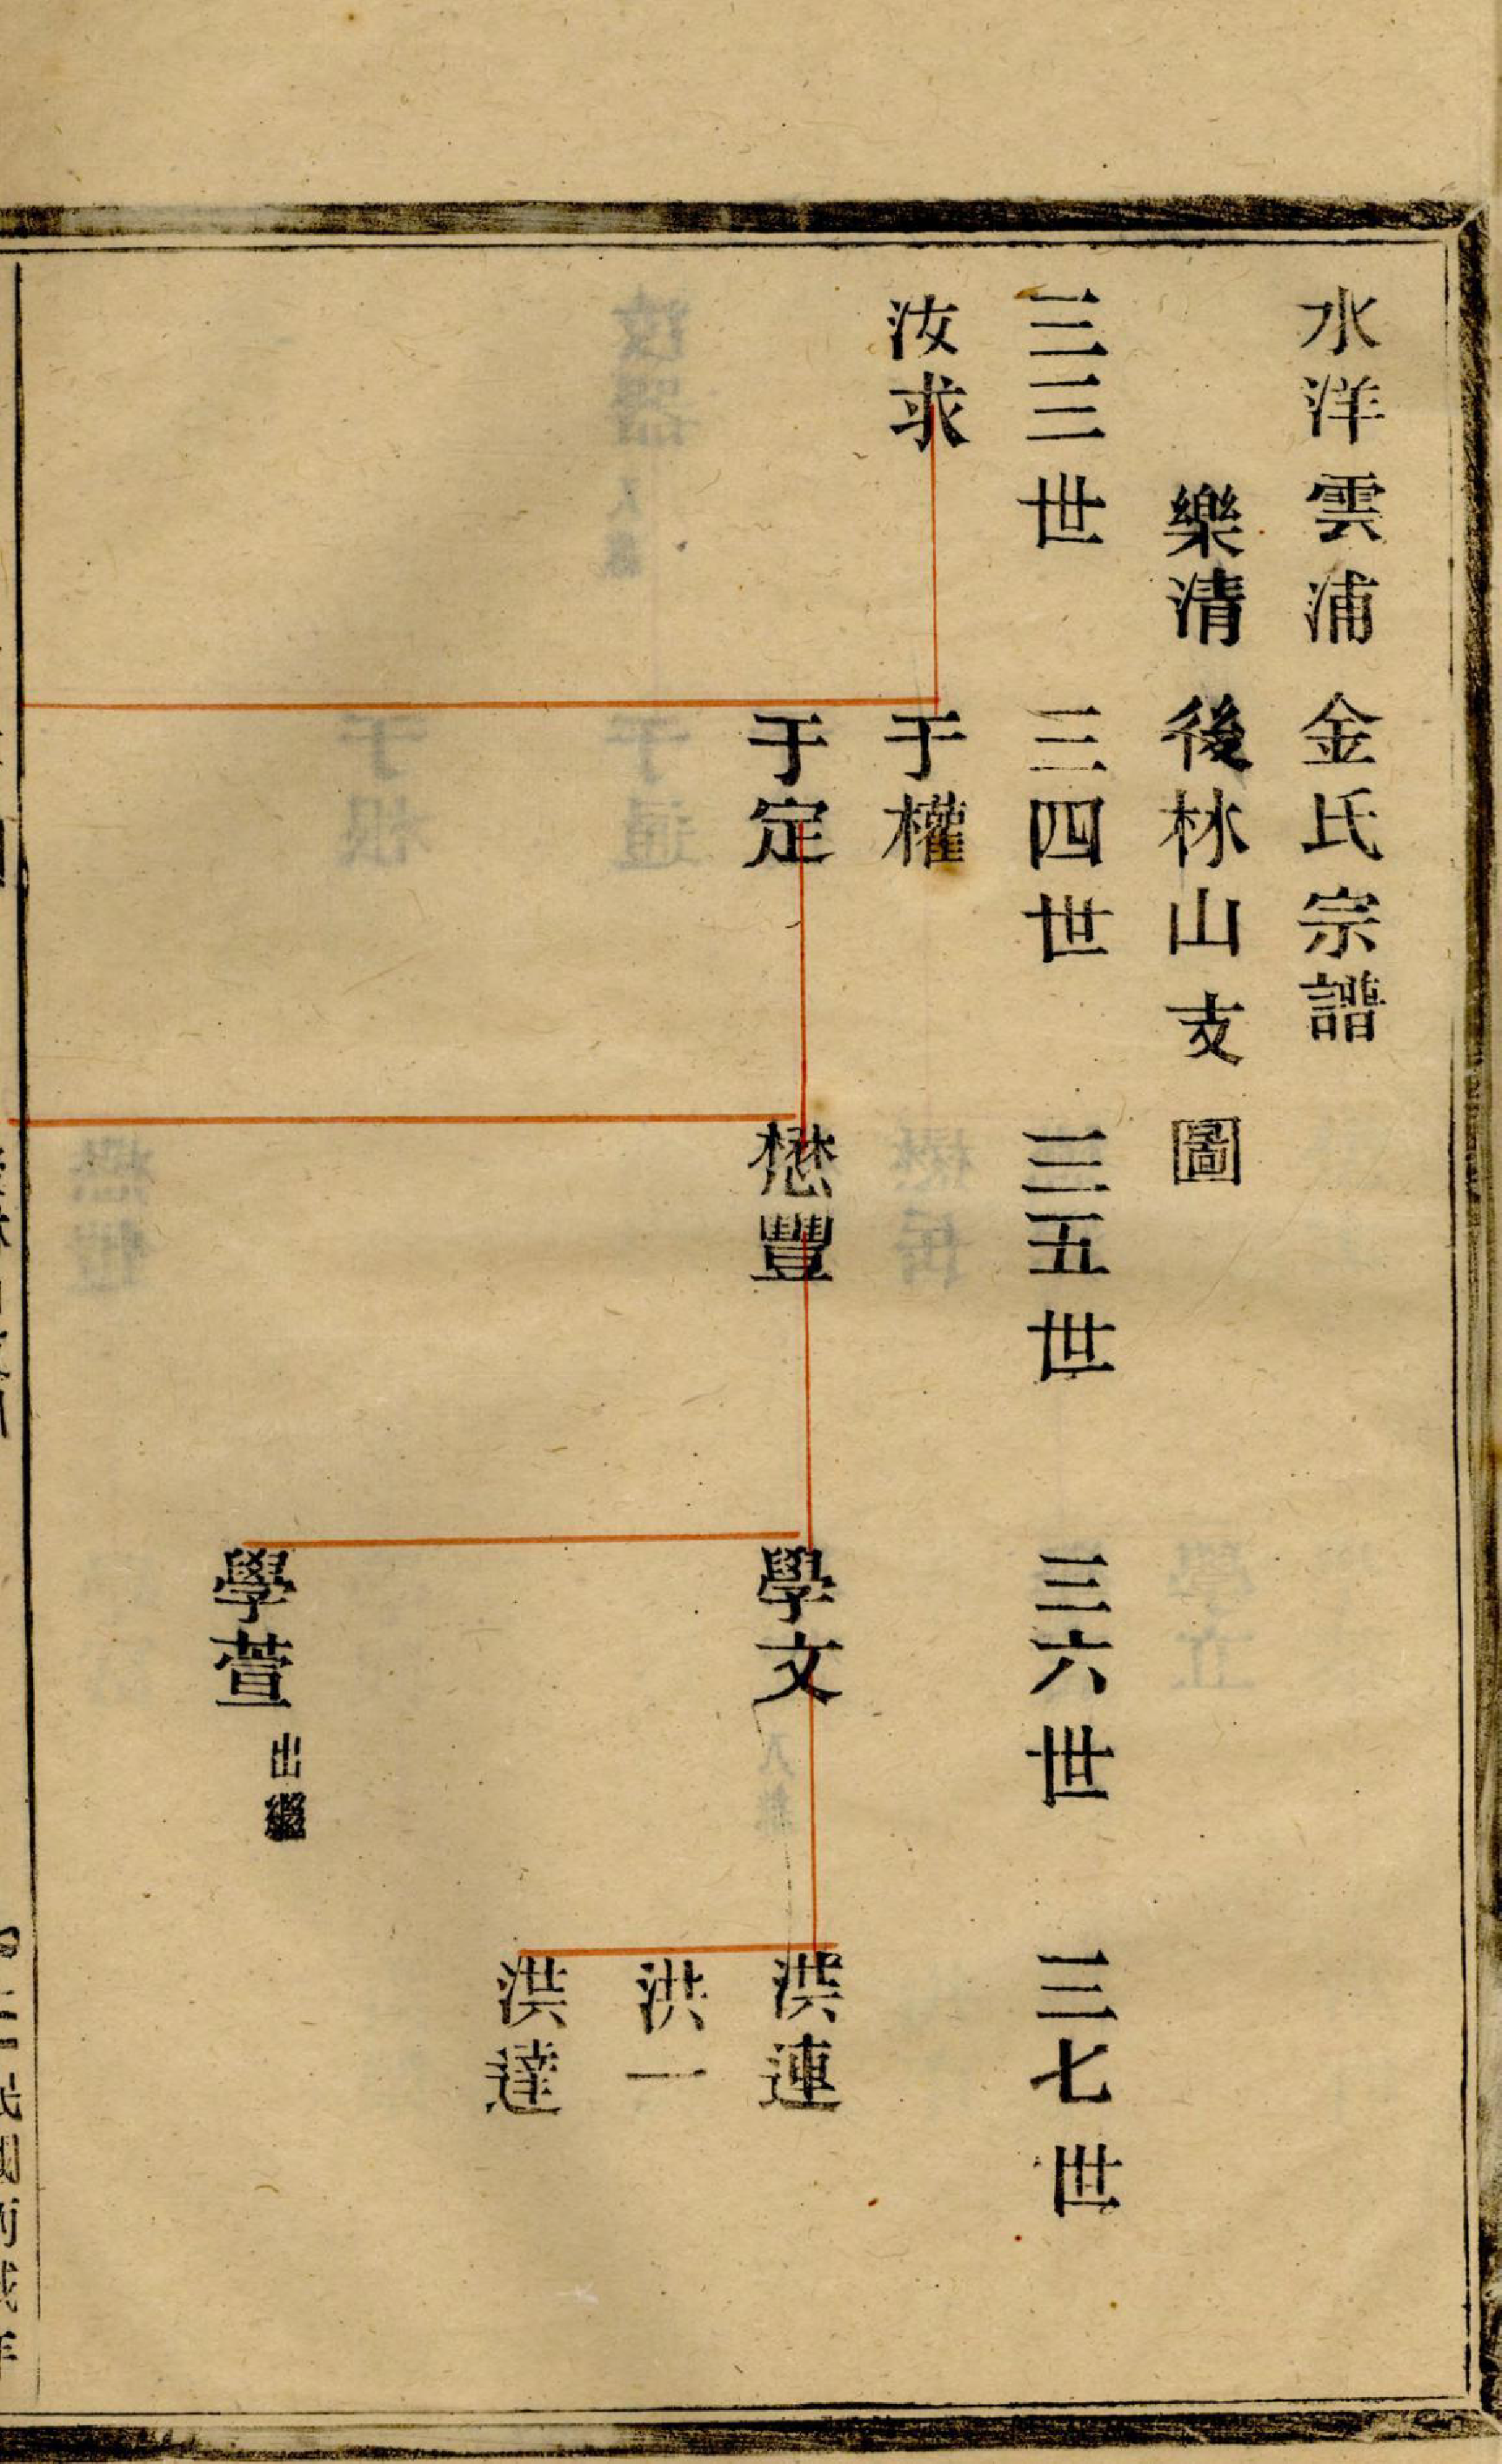 水洋雲浦金氏宗譜
樂清後林山支圖
三三世 三四世 三五世 三六世 三七世
汝求 于權
于定 懋豐 學文 洪連
洪一
洪達
學萱 出繼